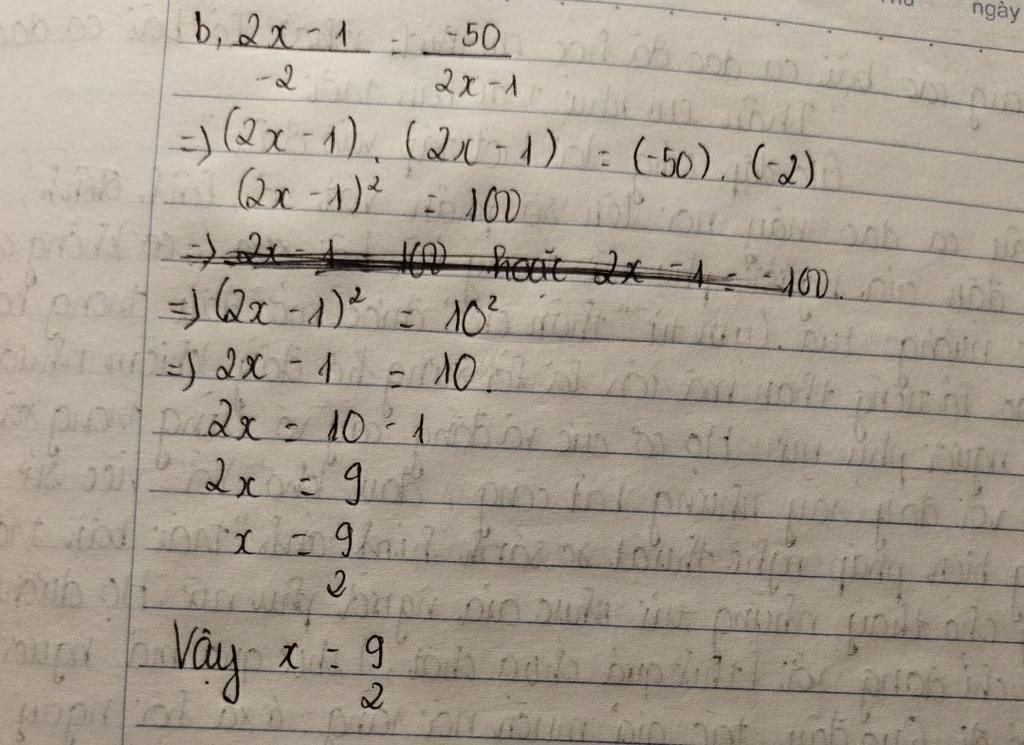 ngày
b, 2x - 1 = -50
-2 2x - 1
=> (2x - 1) . (2x - 1) = (-50) . (-2)
(2x - 1)² = 100
=> 2x - 1 = 100 hoặc 2x - 1 = -100.
=> (2x - 1)² = 10²
=> 2x - 1 = 10.
2x = 10 - 1
2x = 9
x = 9
2
Vậy x = 9
2